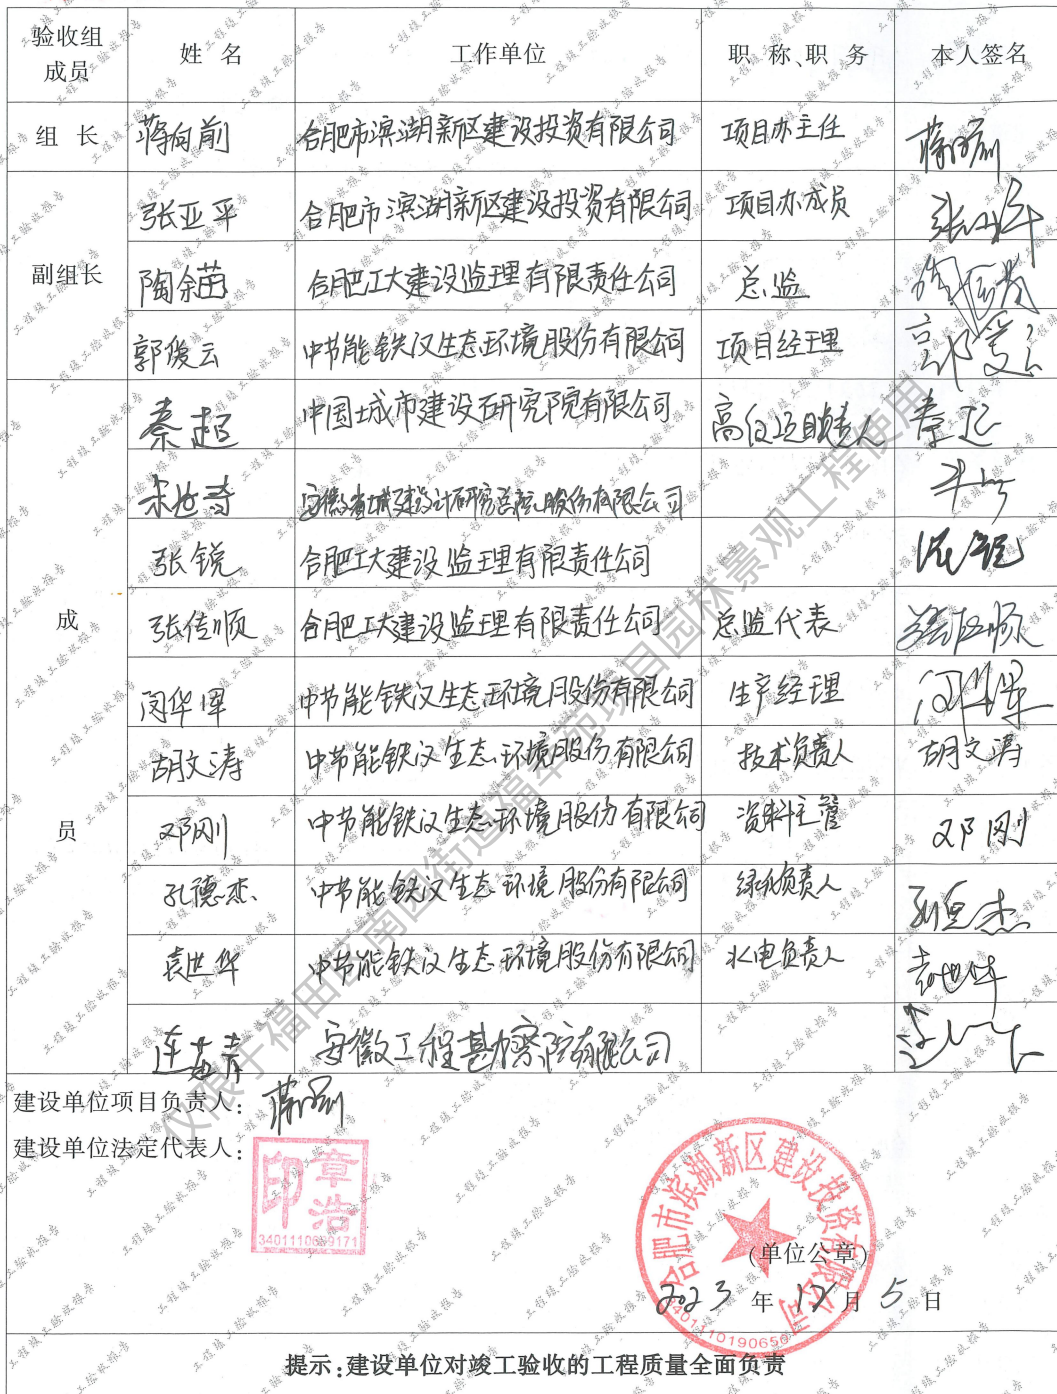 验收组成员 姓名 工作单位 职称、职务 本人签名
组长 蒋向前 合肥市滨湖新区建设投资有限公司 项目办主任
副组长 张亚平 合肥市滨湖新区建设投资有限公司 项目办成员
陶余苗 合肥工大建设监理有限责任公司 总监
郭俊云 中节能铁汉生态环境股份有限公司 项目经理
成员 秦超 中国城市建设研究院有限公司 秦超
安徽省城建设计研究总院股份有限公司
张锐 合肥工大建设监理有限责任公司 张锐
张传顺 合肥工大建设监理有限责任公司 总监代表
闵华军 中节能铁汉生态环境股份有限公司 生产经理
胡文涛 中节能铁汉生态环境股份有限公司 技术负责人 胡文涛
邓刚 中节能铁汉生态环境股份有限公司 资料主管 邓刚
孔德杰 中节能铁汉生态环境股份有限公司 绿化负责人
袁世华 中节能铁汉生态环境股份有限公司 水电负责人 袁世华
安徽工程勘察院有限公司
建设单位项目负责人:
建设单位法定代表人:
章浩印
合肥市滨湖新区建设投资有限公司
3401110190650
(单位公章)
2023 年 12 月 5 日
提示:建设单位对竣工验收的工程质量全面负责
工程竣工验收报告